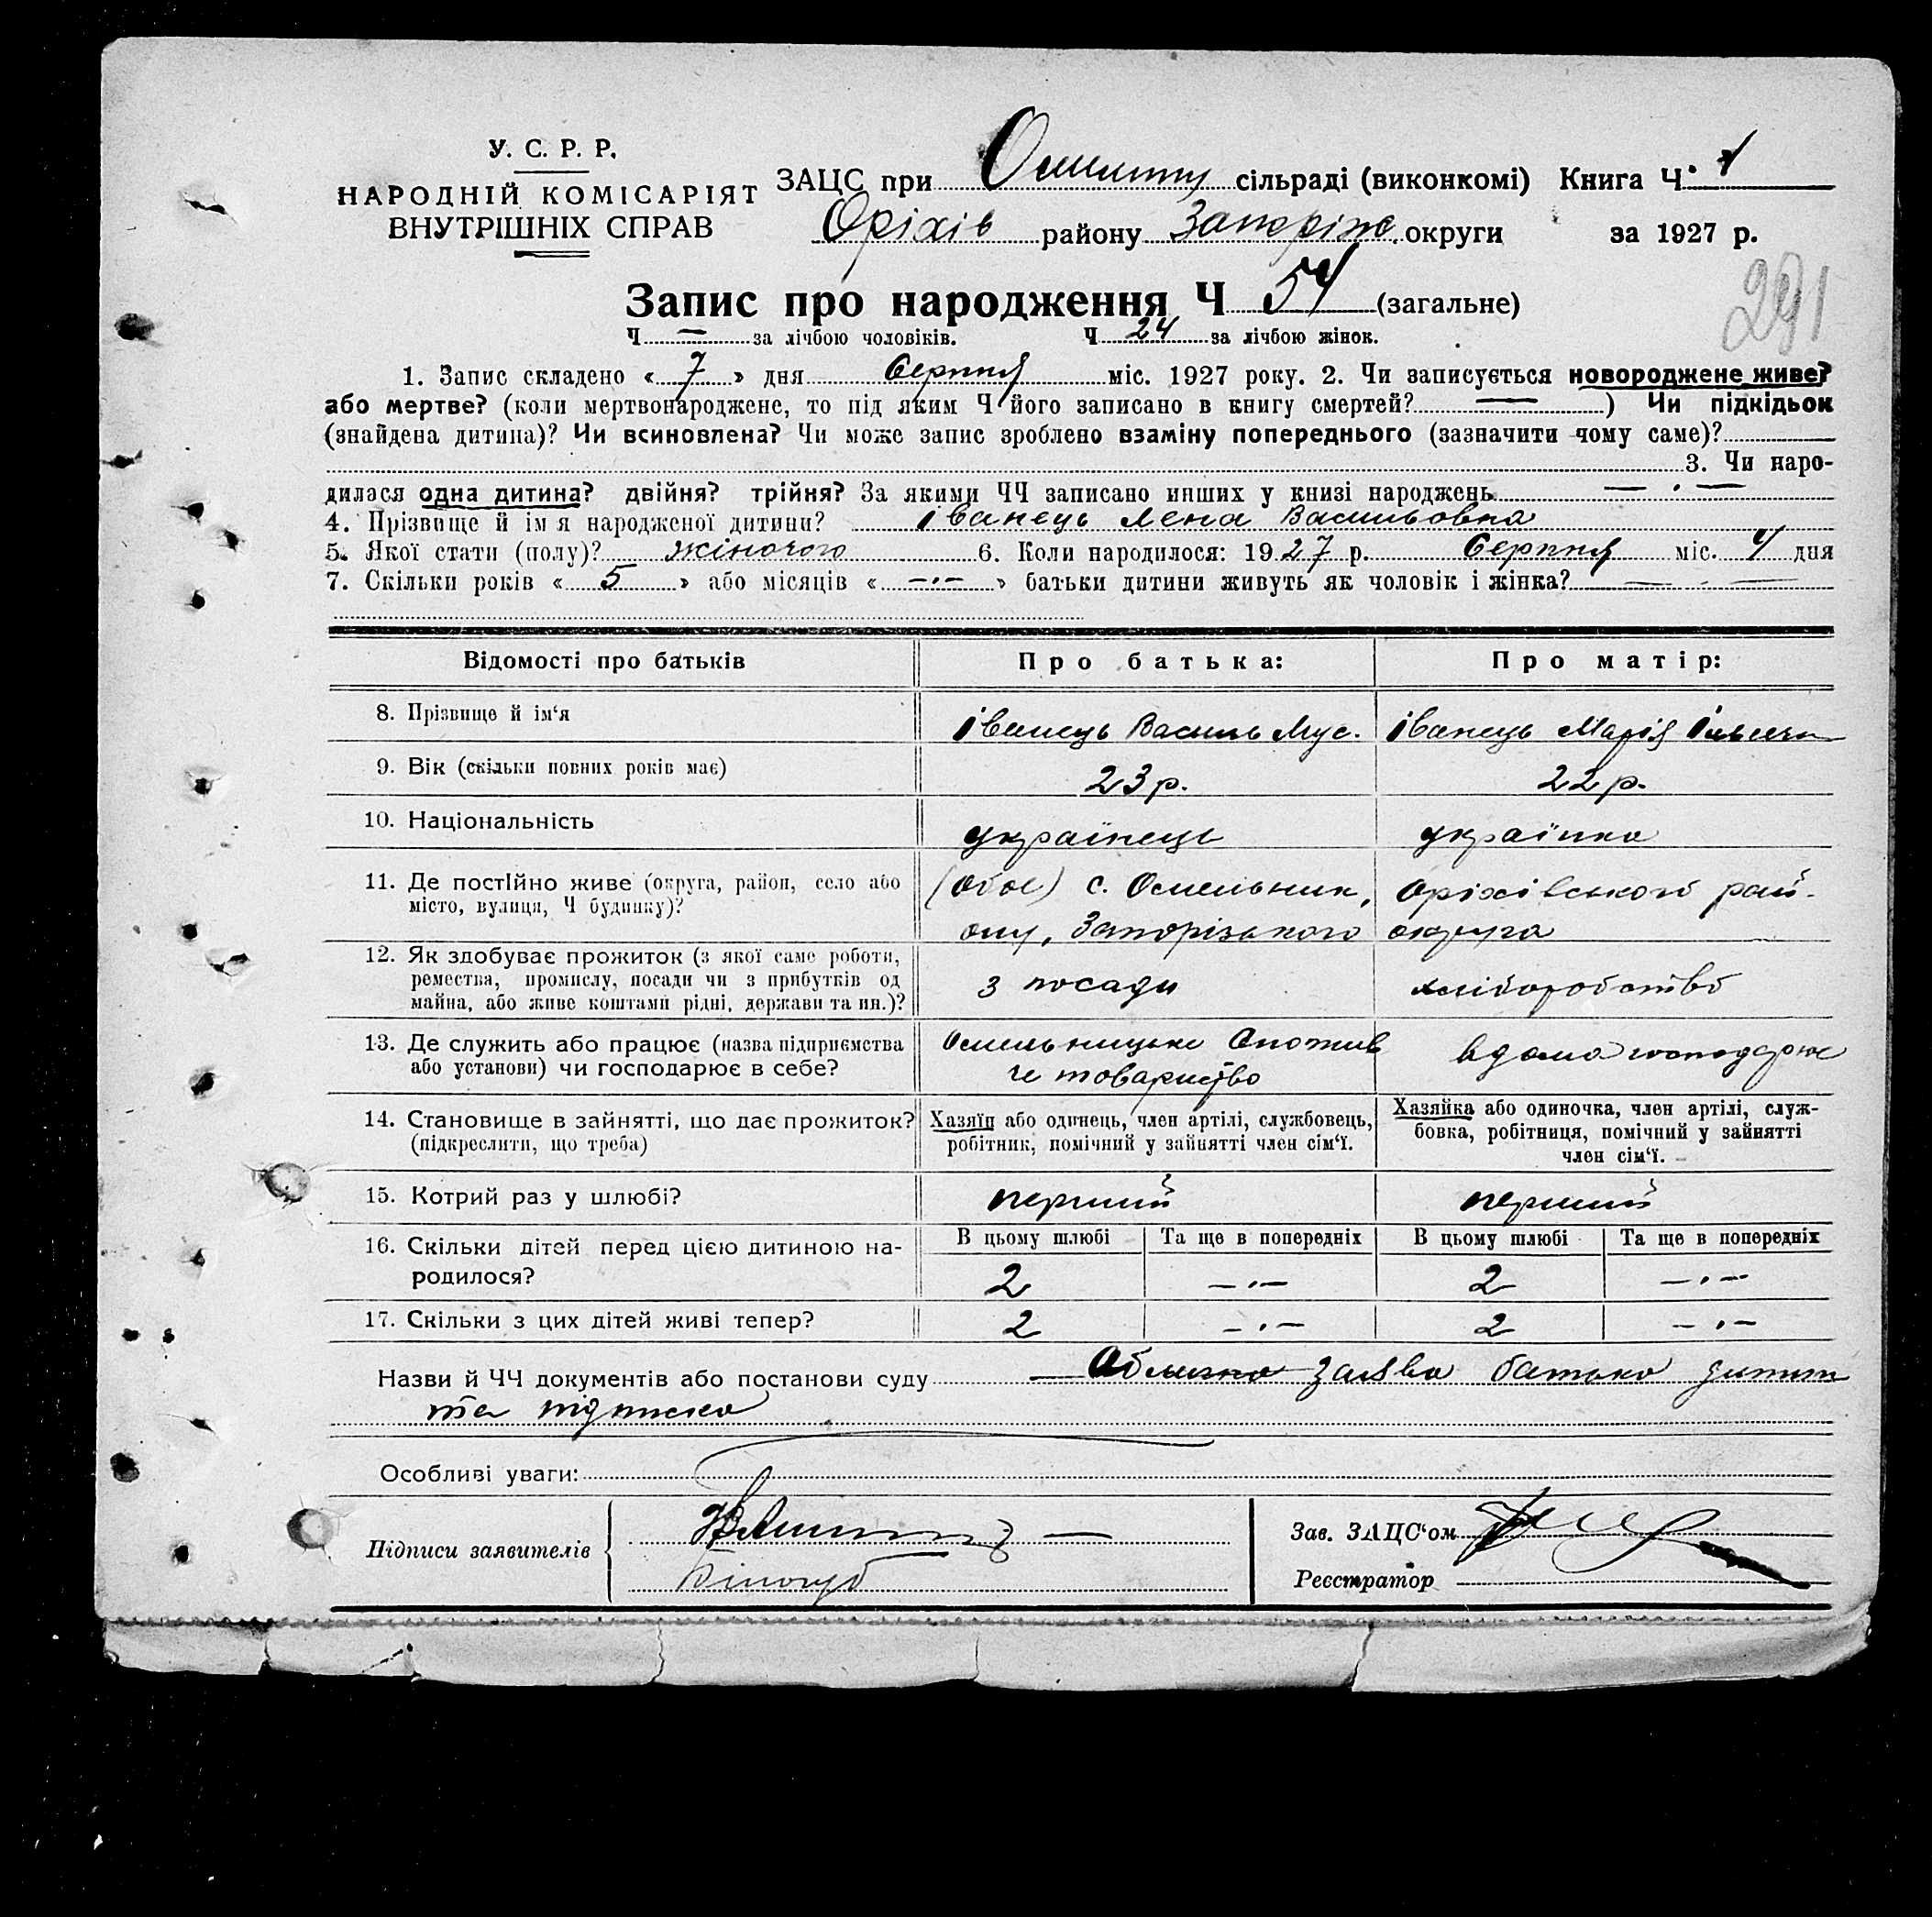 У. С. Р. Р.
НАРОДНІЙ КОМІСАРІЯТ
ВНУТРІШНІХ СПРАВ
ЗАЦС при сільраді (виконкомі) Книга Ч. 1
Оріхів району Запоріж. округи за 1927 р.
291
Запис про народження Ч 54 (загальне)
Ч — за лічбою чоловіків. Ч 24 за лічбою жінок.
1. Запис складено « 7 » дня Серпня міс. 1927 року. 2. Чи записується новороджене живе?
або мертве? (коли мертвонароджене, то під яким Ч його записано в книгу смертей? — ) Чи підкідьок
(знайдена дитина)? Чи всиновлена? Чи може запис зроблено взаміну попереднього (зазначити чому саме)?
3. Чи наро-
дилася одна дитина? двійня? трійня? За якими ЧЧ записано инших у книзі народжень — . —
4. Прізвище й ім'я народженої дитини? Іванець Лена Васильовна
5. Якої стати (полу)? жіночого 6. Коли народилося: 1927 р. Серпня міс. 4 дня
7. Скільки років « 5 » або місяців « —.— » батьки дитини живуть як чоловік і жінка? — . —
Відомості про батьків Про батька: Про матір:
8. Прізвище й ім'я Іванець Василь Мус. Іванець Марія
9. Вік (скільки повних років має) 23 р. 22 р.
10. Національність українець українка
11. Де постійно живе (округа, район, село або (обоє) с. Омельник, Оріхівського рай-
місто, вулиця, Ч будинку)? ону, Запорізького округа
12. Як здобуває прожиток (з якої саме роботи,
ремества, промислу, посади чи з прибутків од з посади хліборобство
майна, або живе коштами рідні, держави та ин.)?
13. Де служить або працює (назва підприємства Омельницьке Спожив вдома господарює
або установи) чи господарює в себе? че товариство
14. Становище в зайнятті, що дає прожиток? Хазяїн або одинець, член артілі, службовець, Хазяйка або одиночка, член артілі, служ-
(підкреслити, що треба) робітник, помічний у зайнятті член сім'ї. бовка, робітниця, помічний у зайнятті
член сім'ї.
15. Котрий раз у шлюбі? перший перший
16. Скільки дітей перед цією дитиною на- В цьому шлюбі Та ще в попередніх В цьому шлюбі Та ще в попередніх
родилося? 2 —.— 2 —.—
17. Скільки з цих дітей живі тепер? 2 —.— 2 —.—
Назви й ЧЧ документів або постанови суду заява батька
та підписка
Особливі уваги:
Підписи заявителів
Білогуб
Зав. ЗАЦС'ом
Реєстратор